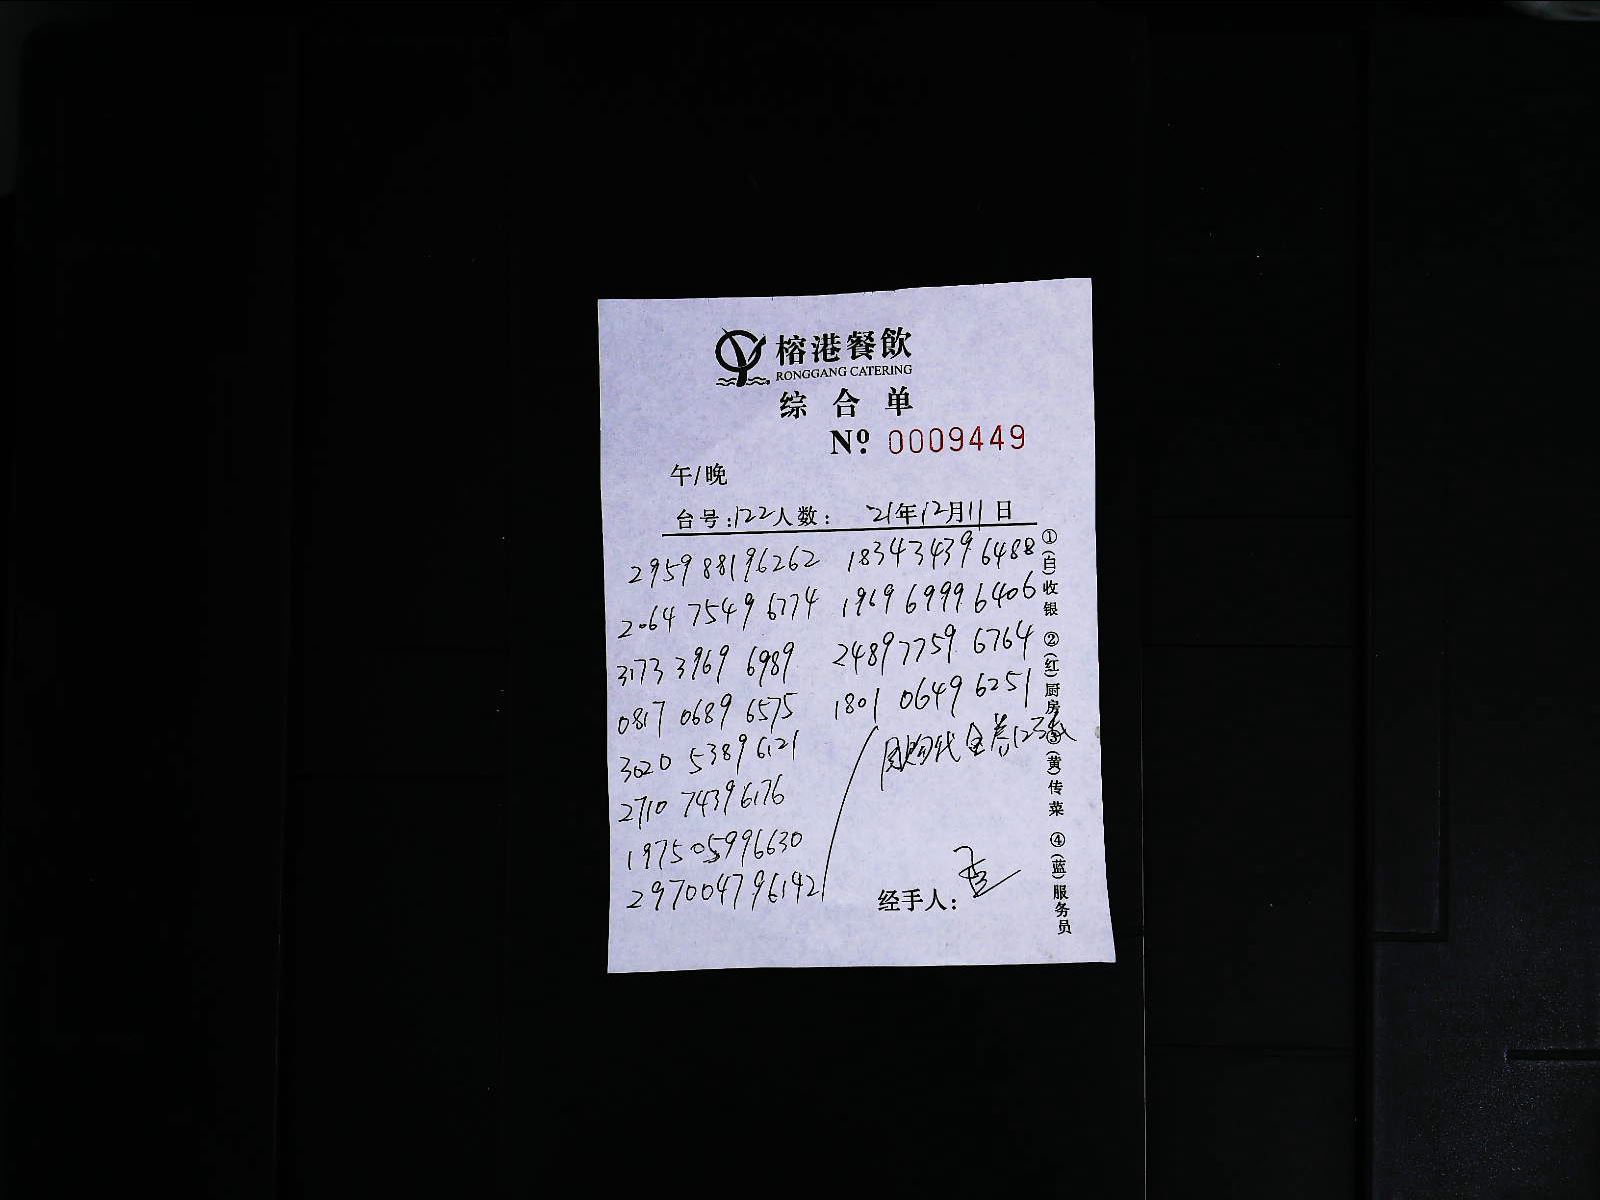 榕港餐飲
RONGGANG CATERING
综合单
Nº: 0009449
午/晚
台号:122人数: 21年12月11日
2959 88196262 1834 3439 6488
2064 7549 6774 1969 6999 6406
3173 3969 6989 2489 7759 6764
0817 0689 6575 1801 0649 6251
3020 5389 6121 团购代金券12张
2710 7439 6176
1975 0599 6630
2970 0479 6142
经手人:
①(白)收银 ②(红)厨房 ③(黄)传菜 ④(蓝)服务员